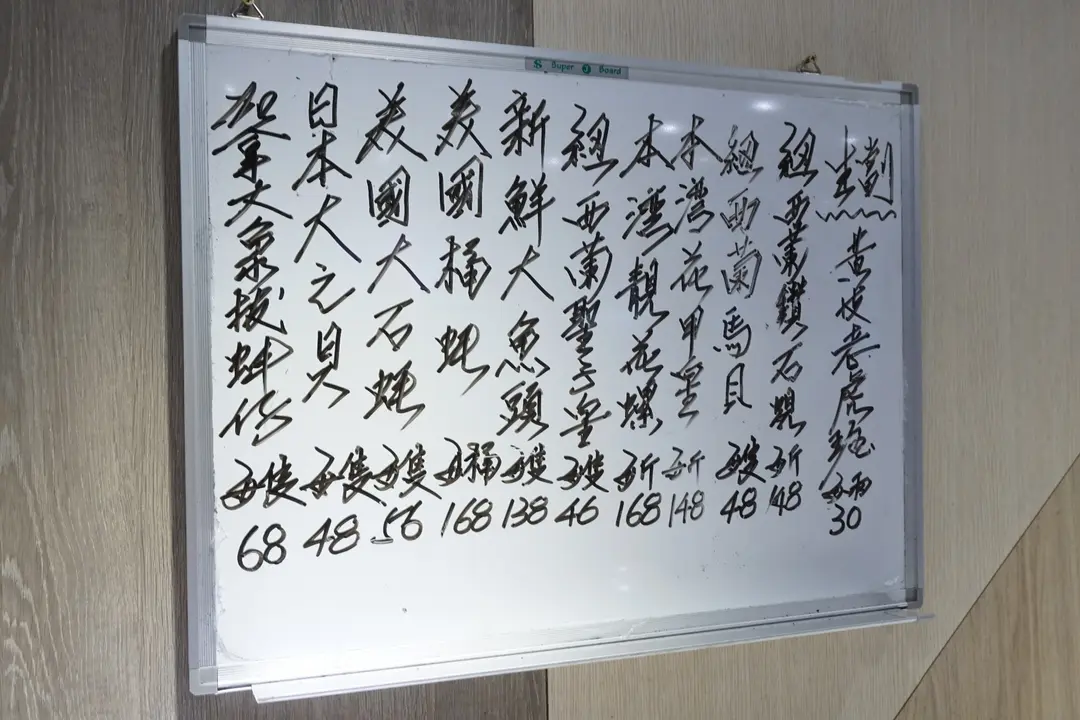 S Super Board
生劏
黃皮老虎斑 每兩 30
紐西蘭鑽石蜆 每斤 48
紐西蘭馬貝 每隻 48
本灣花甲皇 每斤 148
本灣靚花螺 每斤 168
紐西蘭聖子皇 每隻 46
新鮮大魚頭 每隻 138
美國桶蚝 每桶 168
美國大石蚝 每隻 56
日本大元貝 每隻 48
加拿大象拔蚌仔 每隻 68